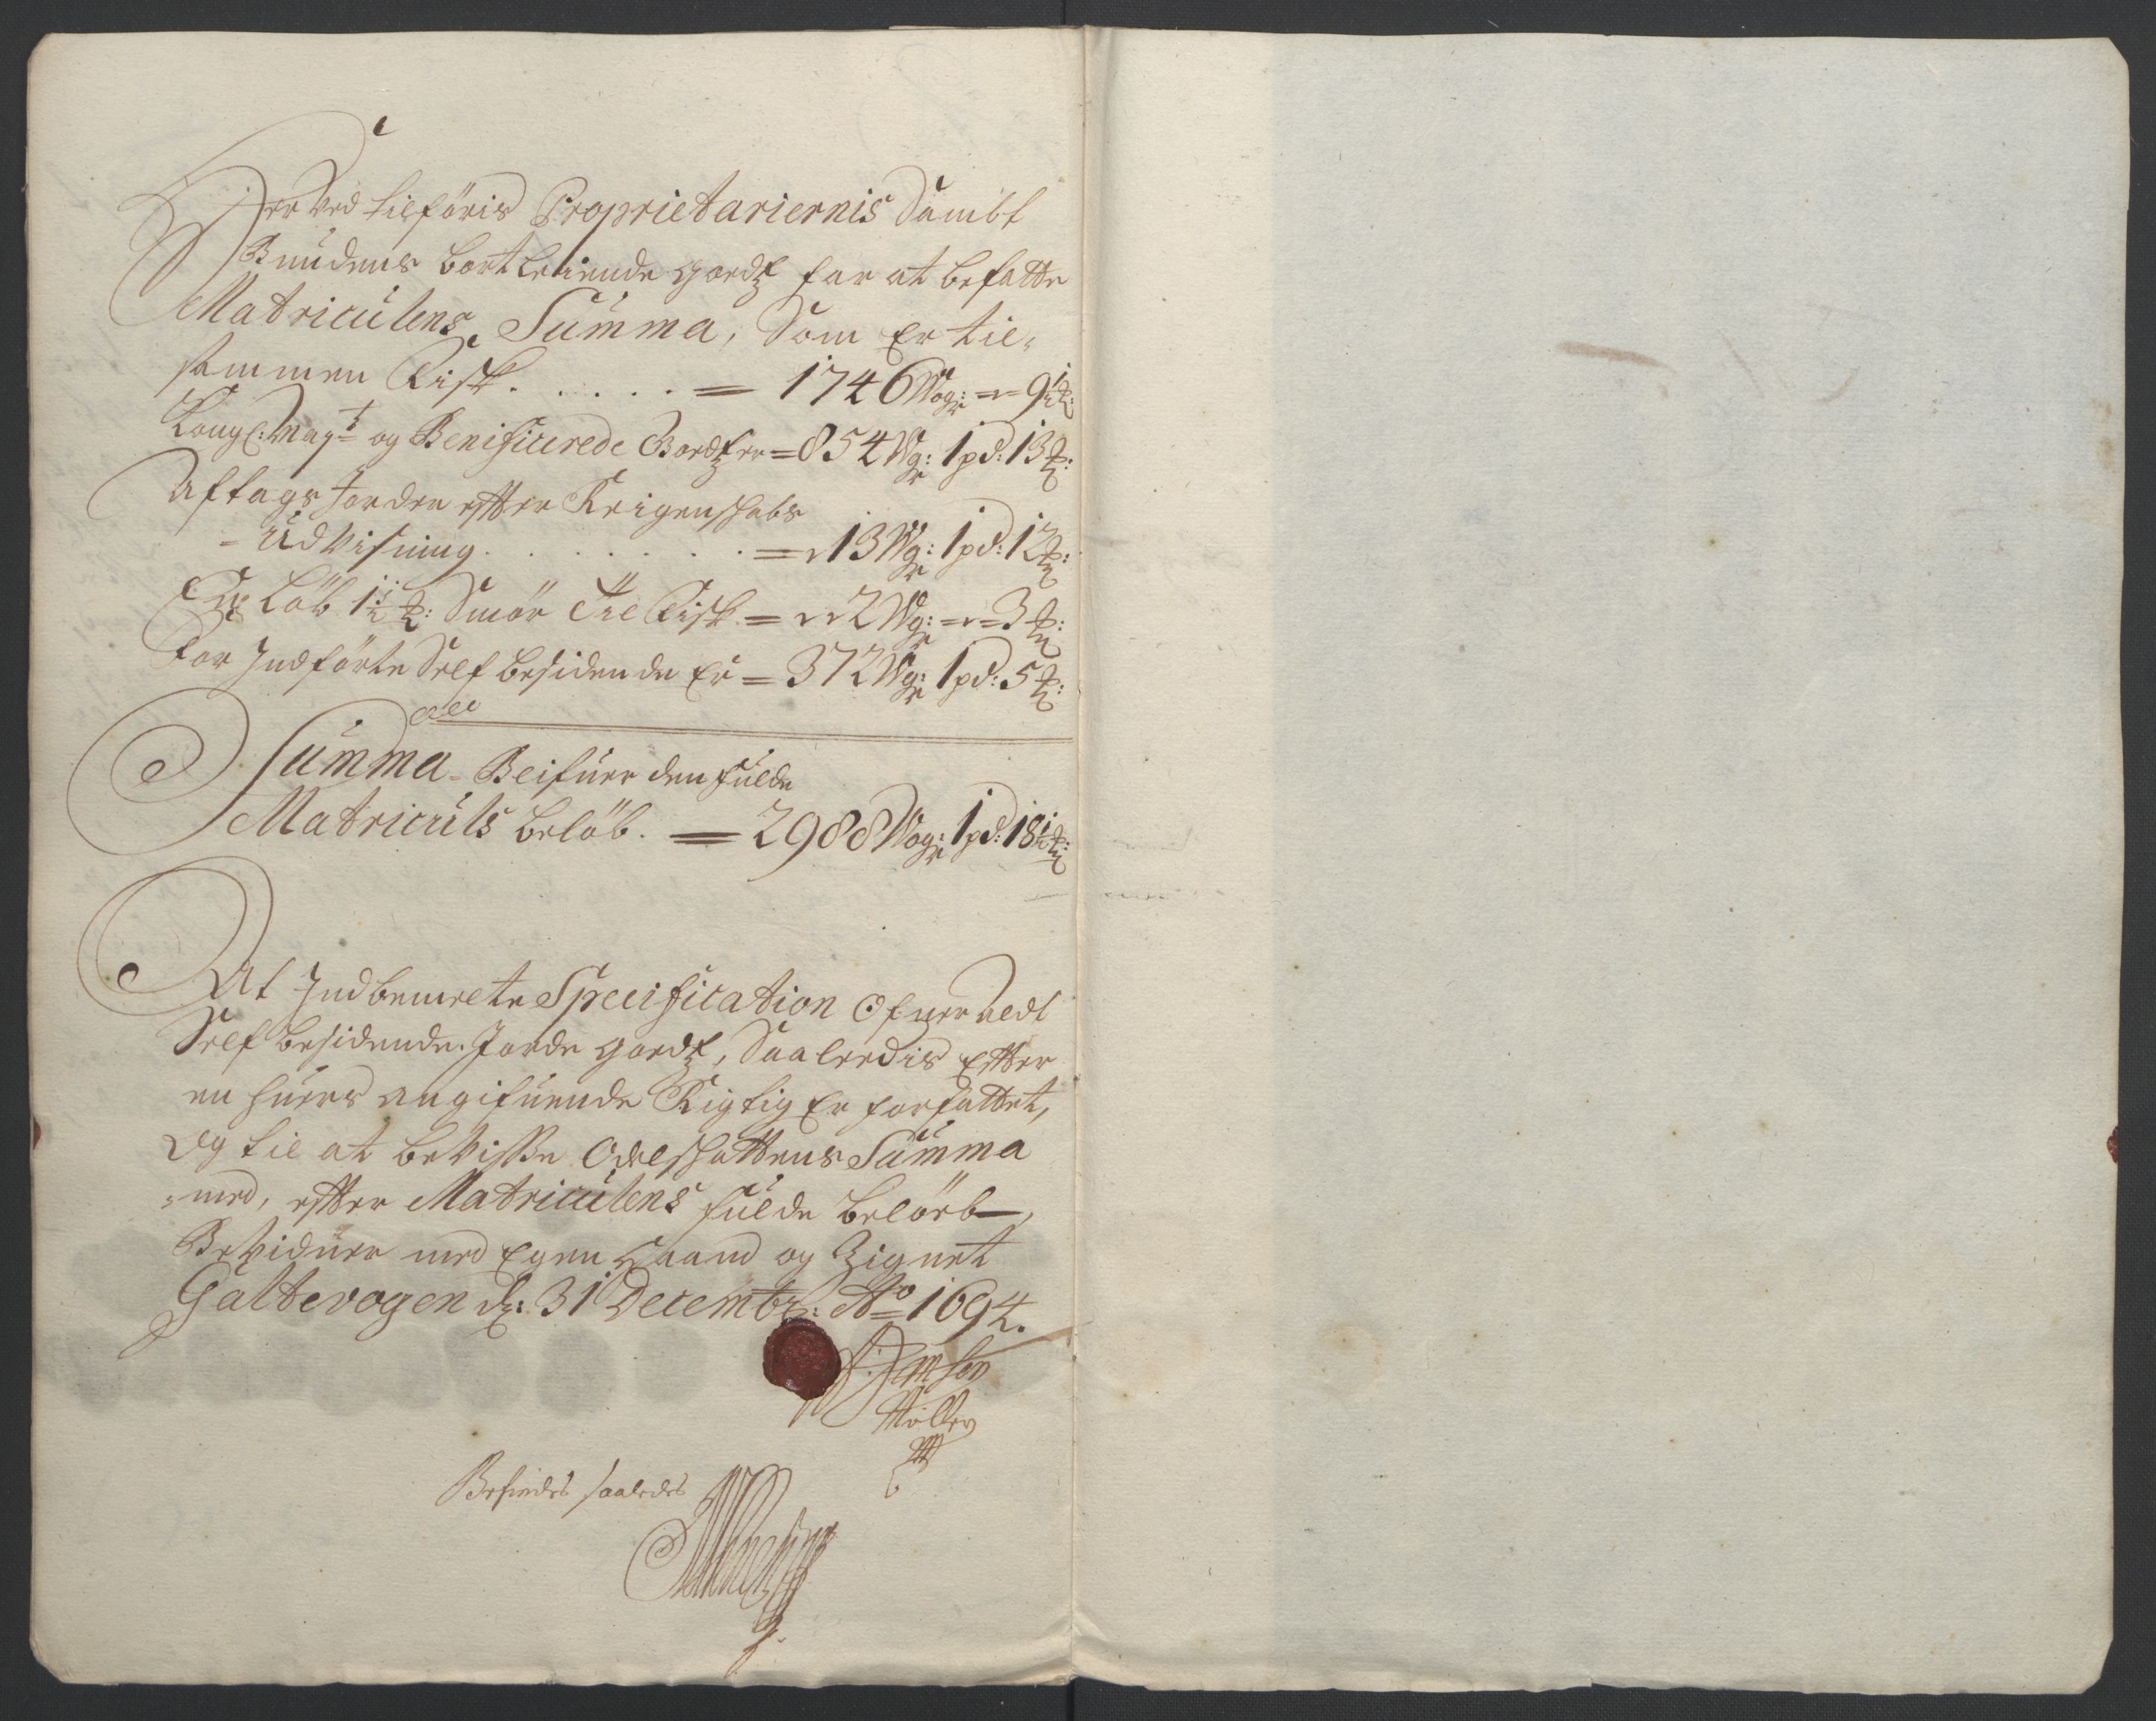 Herved tilföris Proprietariernis Sambt
Bundens bortleiende godtz for at befatte
Matriculens Summa, Som Er til-
sammen Fisk. . . . . . = 1746 Wog: – 9½ ℔:
Kongl: Mayt og Benificerede Godtzer = 854 Wg: 1 pd: 13 ℔:
Aftags Jorder efter Reigenskabs
- Udvisning. . . . . . . . = 13 Wg: 1 pd: 12 ℔:
Löb 1½ ℔: Smör Til Fisk = 2 Wg: – 3 ℔:
For Indförte Self besidende Er = 372 Wg: 1 pd: 5 ℔:
Summa Beifuer den fulde
Matriculs belöb. = 2988 Wog: 1 pd: 18½ ℔:
At Indbemelte Specification Ofver aldt
Self besidende Jorde godtz, Saaleedis Efter
en huers angifuende Rigtig Er forfattet,
og til at bevisse Odelskattens Summa
med, efter Matriculens fulde belöeb,
Bevidner med Egen Haand og Zignet
Galtevogen d: 31 Decembr: Ao 1694.
Jemson
Möller
Befindes saaledes